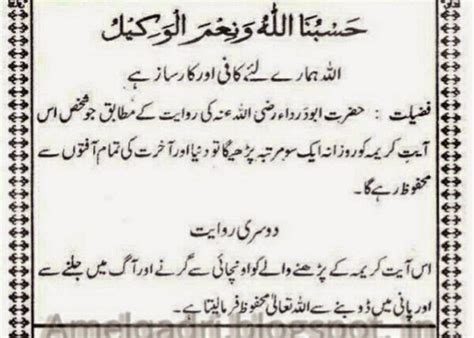 حَسْبُنَا اللّٰهُ وَنِعْمَ الْوَكِيْلُ
اللہ ہمارے لئے کافی اور کارساز ہے
فضیلت : حضرت ابودرداء رضی اللہ عنہ کی روایت کے مطابق جو شخص اس
آیتِ کریمہ کو روزانہ ایک سو مرتبہ پڑھیگا تو دنیا اور آخرت کی تمام آفتوں سے
محفوظ رہے گا۔
دوسری روایت
اس آیت کریمہ کے پڑھنے والے کو اونچائی سے گرنے اور آگ میں جلنے سے
اور پانی میں ڈوبنے سے اللہ تعالیٰ محفوظ فرمالیتا ہے۔
Amelqadri.blogspot. in